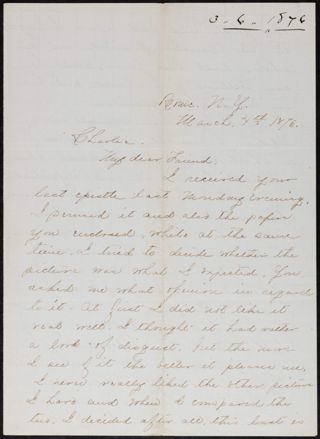 3-6-1876
Rome. N.Y.
March. 5th 1876.
Charlie.
My dear Friend.
I received your
last epistle last Monday evening.
I perused it and also the paper
you enclosed, while at the same
time, I tried to decide whether the
picture was what I expected. You
asked me what opinion in regard
to it. At first I did not like it
real well. I thought it had rather
a look of disgust. but the more
I see of it the better it please me,
I never really liked the other picture
I have and when I compared the
two, I decided after all, this last is